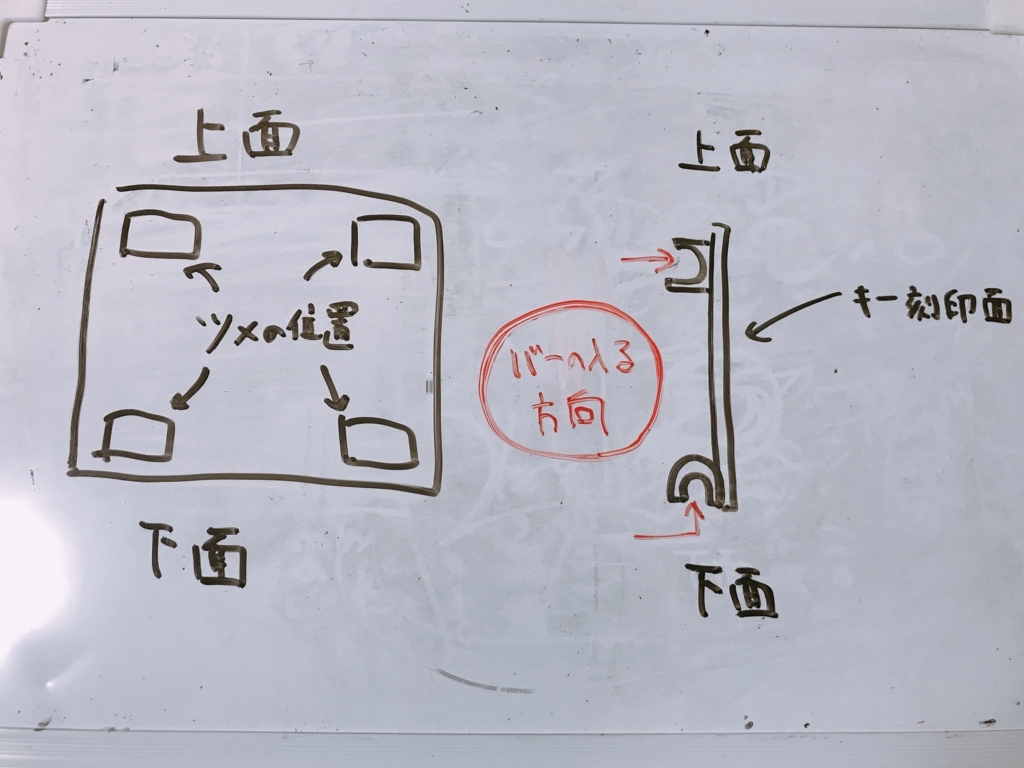 上面
ツメの位置
下面
上面
キー刻印面
バーの入る
方向
下面